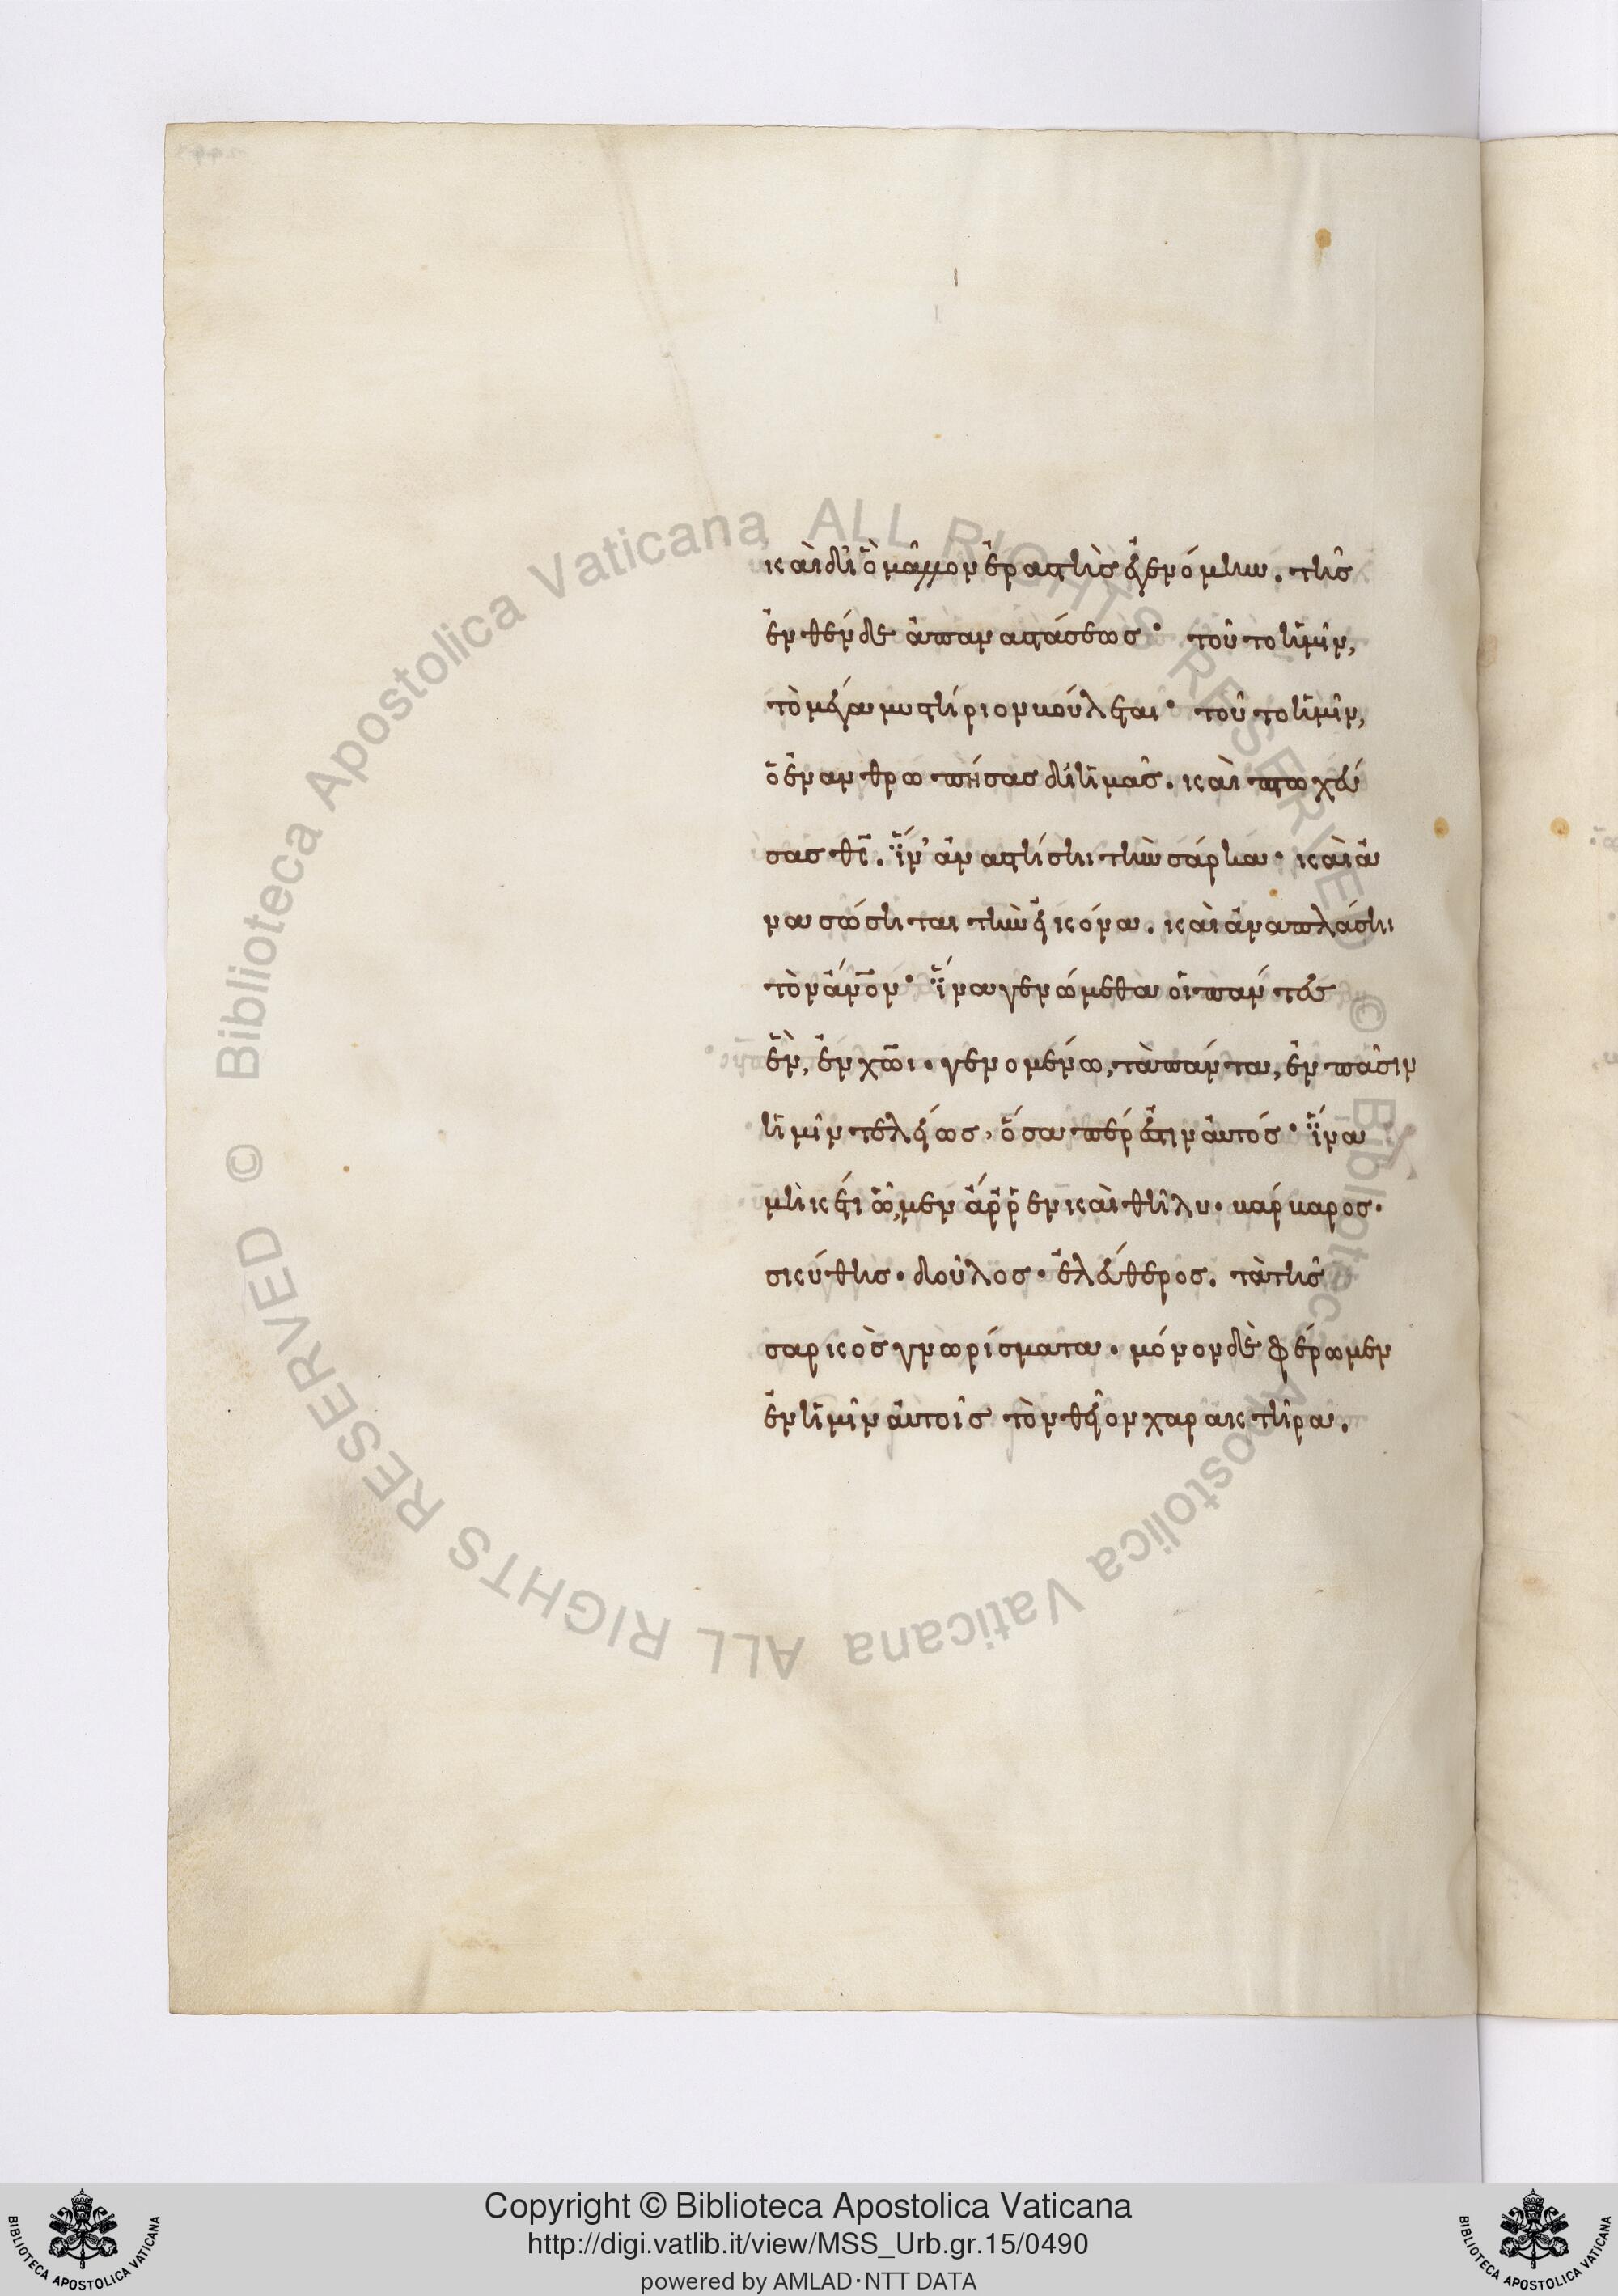 καὶ δι' ὃ μᾶλλον ἐραστὴς ἐγενόμην. τῆς
ἐνθένδε ἀπαναστάσεως· τοῦτο ἡμῖν,
τὸ μέγα μυστήριον βούλεται· τοῦτο ἡμῖν,
ὁ ἐνανθρωπήσας δι' ἡμᾶς. καὶ πτωχεύ
σας θ̅ς̅. ἵν' ἀναστήσηι τὴν σάρκα· καὶ ἀ
νασώσηται τὴν εἰκόνα. καὶ ἀναπλάσηι
τὸν ἄν̅ον· ἵνα γενώμεθα οἱ πάντες
ἓν, ἐν χ̅ω̅ι. γενομένω, τὰ πάντα, ἐν πᾶσιν
ἡμῖν τελείως, ὅσα πέρ ἐστιν αὐτός· ἵνα
μηκέτι ὦμεν ἄρρεν καὶ θῆλυ· βάρβαρος·
σκύθης· δοῦλος· ἐλεύθερος. τὰ τῆς
σαρκὸς γνωρίσματα. μόνον δὲ φέρωμεν
ἐν ἡμῖν αὐτοῖς τὸν θεῖον χαρακτῆρα.
Copyright © Biblioteca Apostolica Vaticana
http://digi.vatlib.it/view/MSS_Urb.gr.15/0490
powered by AMLAD·NTT DATA
BIBLIOTECA APOSTOLICA VATICANA
BIBLIOTECA APOSTOLICA VATICANA
© Biblioteca Apostolica Vaticana ALL RIGHTS RESERVED © Biblioteca Apostolica Vaticana ALL RIGHTS RESERVED